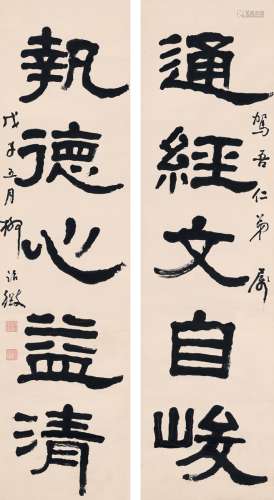 通經文自峻
駕吾仁弟屬
執德心益清
戊子五月柳詒徵